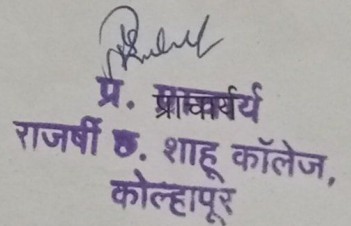 प्र. प्राचार्य
राजर्षी छ. शाहू कॉलेज,
कोल्हापूर